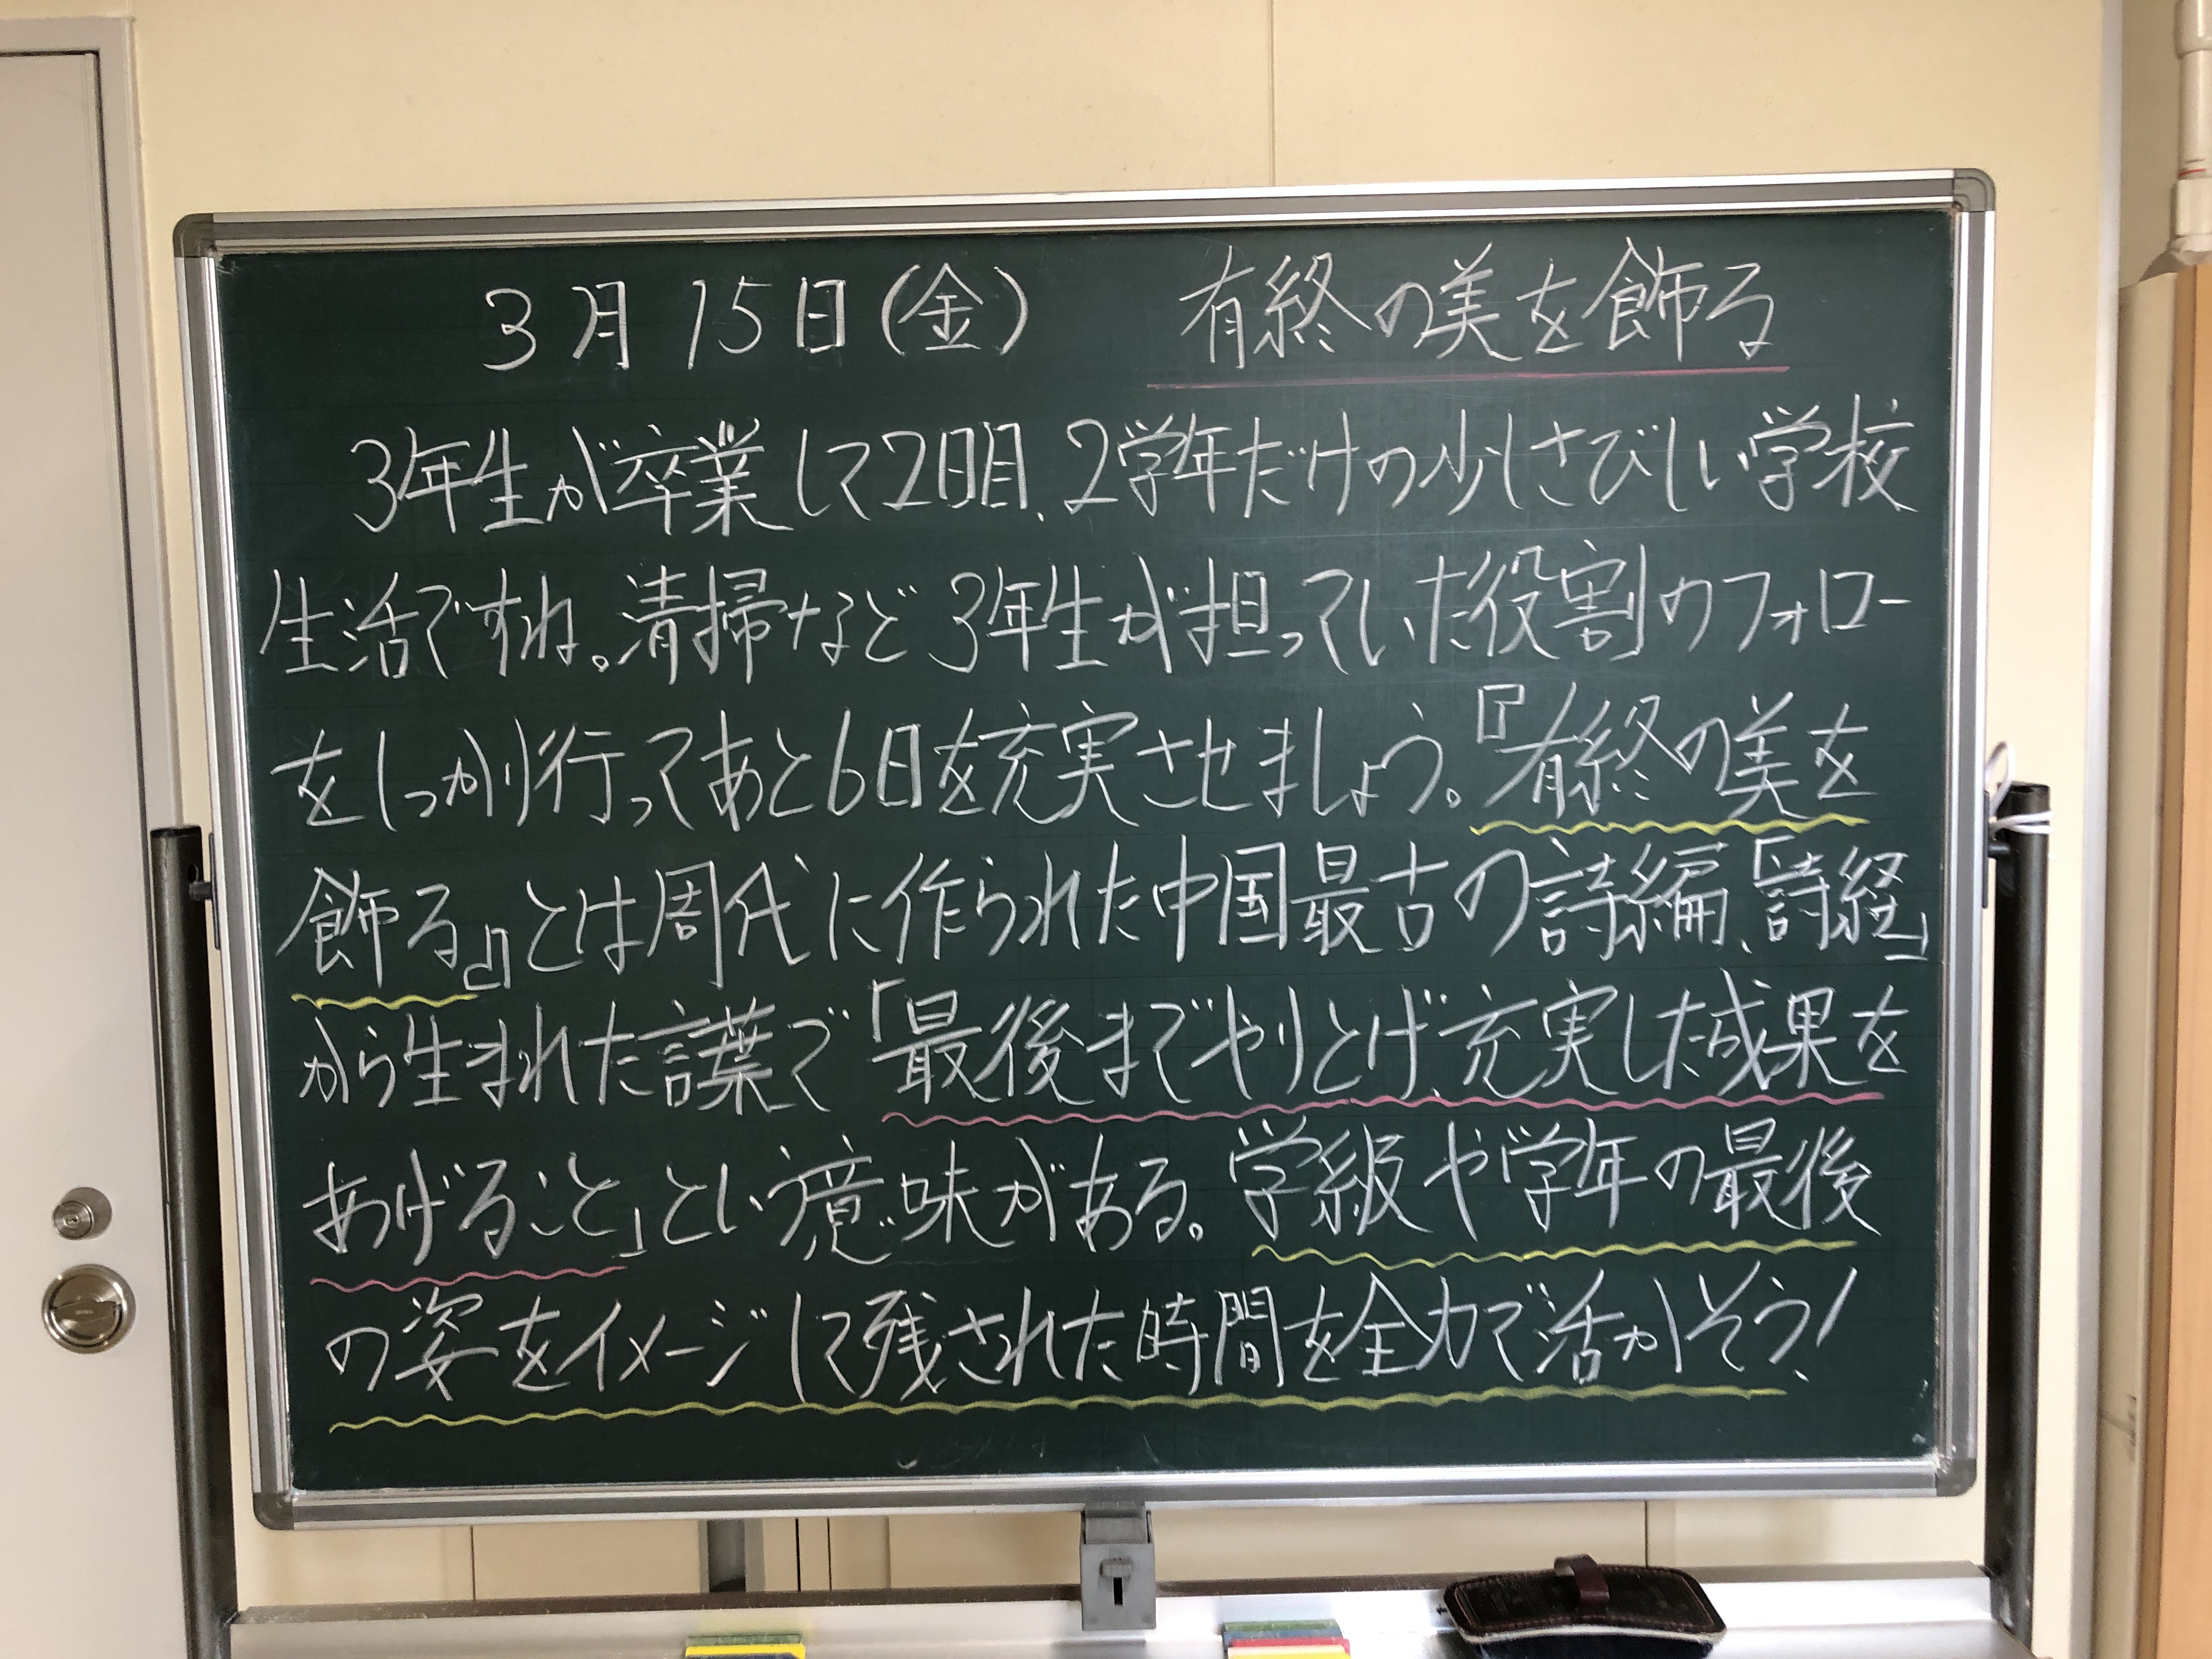 3月15日(金) 有終の美を飾る
3年生が卒業して2日目、2学年だけの少しさびしい学校
生活ですね。清掃など3年生が担っていた役割のフォロー
をしっかり行ってあと6日を充実させましょう。『有終の美を
飾る』とは周代に作られた中国最古の詩編、「詩経」
から生まれた言葉で「最後までやりとげ、充実した成果を
あげること」とい意味がある。学級や学年の最後
の姿をイメージして残された時間を全力で活かそう!